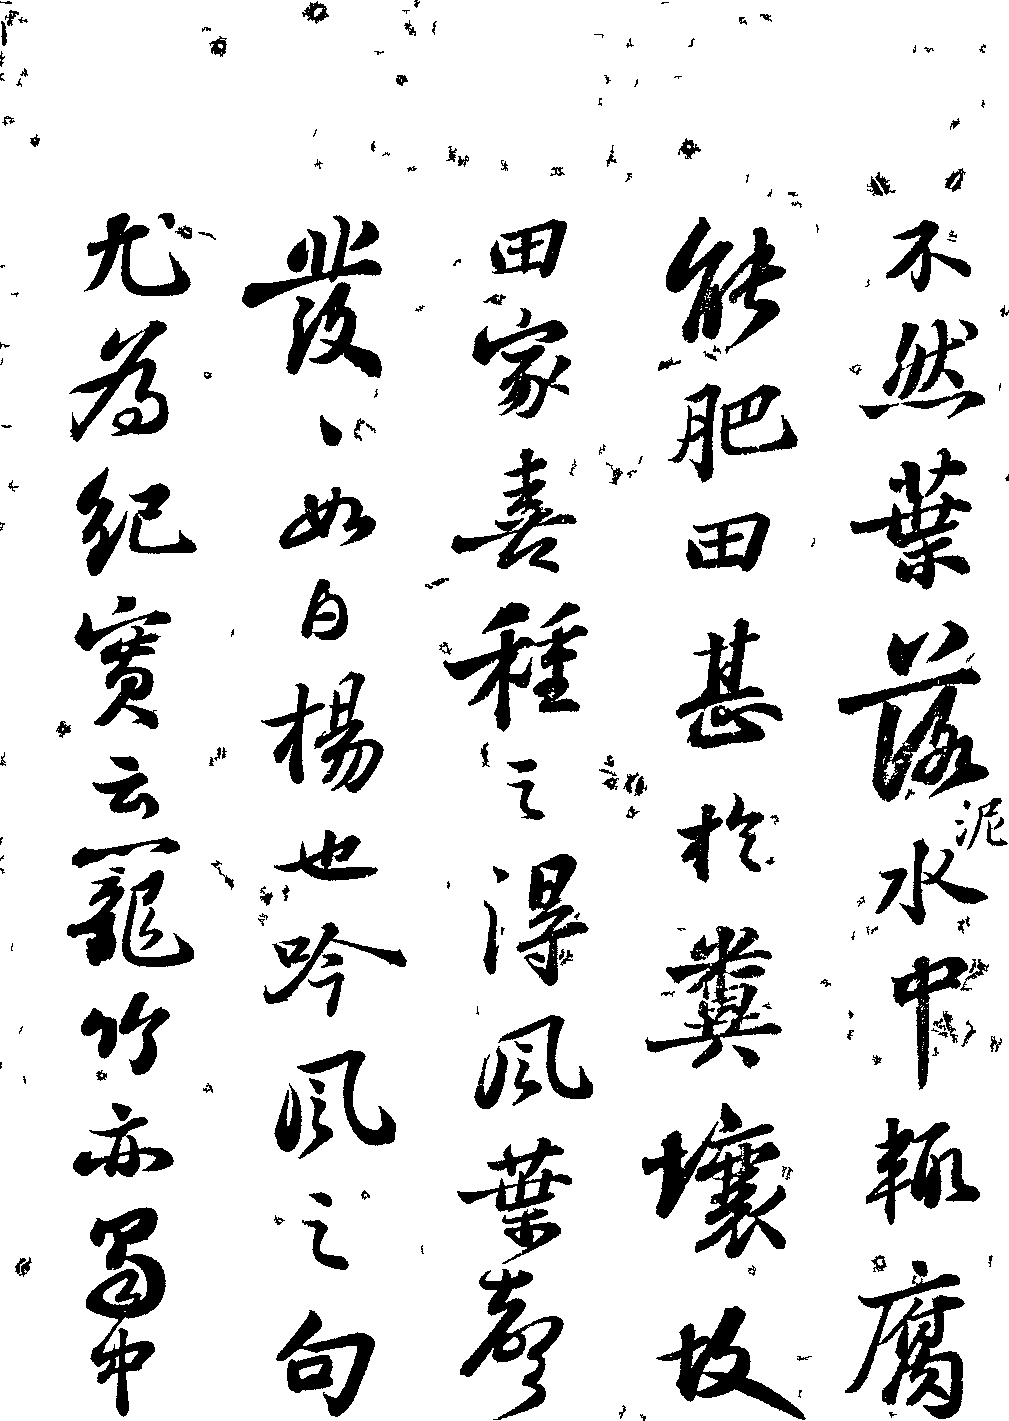 不然葉落泥水中輙腐
能肥田甚於糞壤故
田家喜種之得風葉聲
發〻如白楊也吟風之句
尤為紀實云籠竹亦蜀中